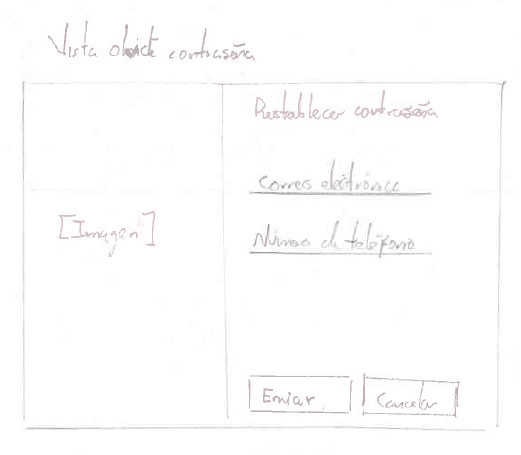 Vista olvidé contraseña
Restablecer contraseña
Correo electrónico
[Imagen]
Número de teléfono
Enviar
Cancelar